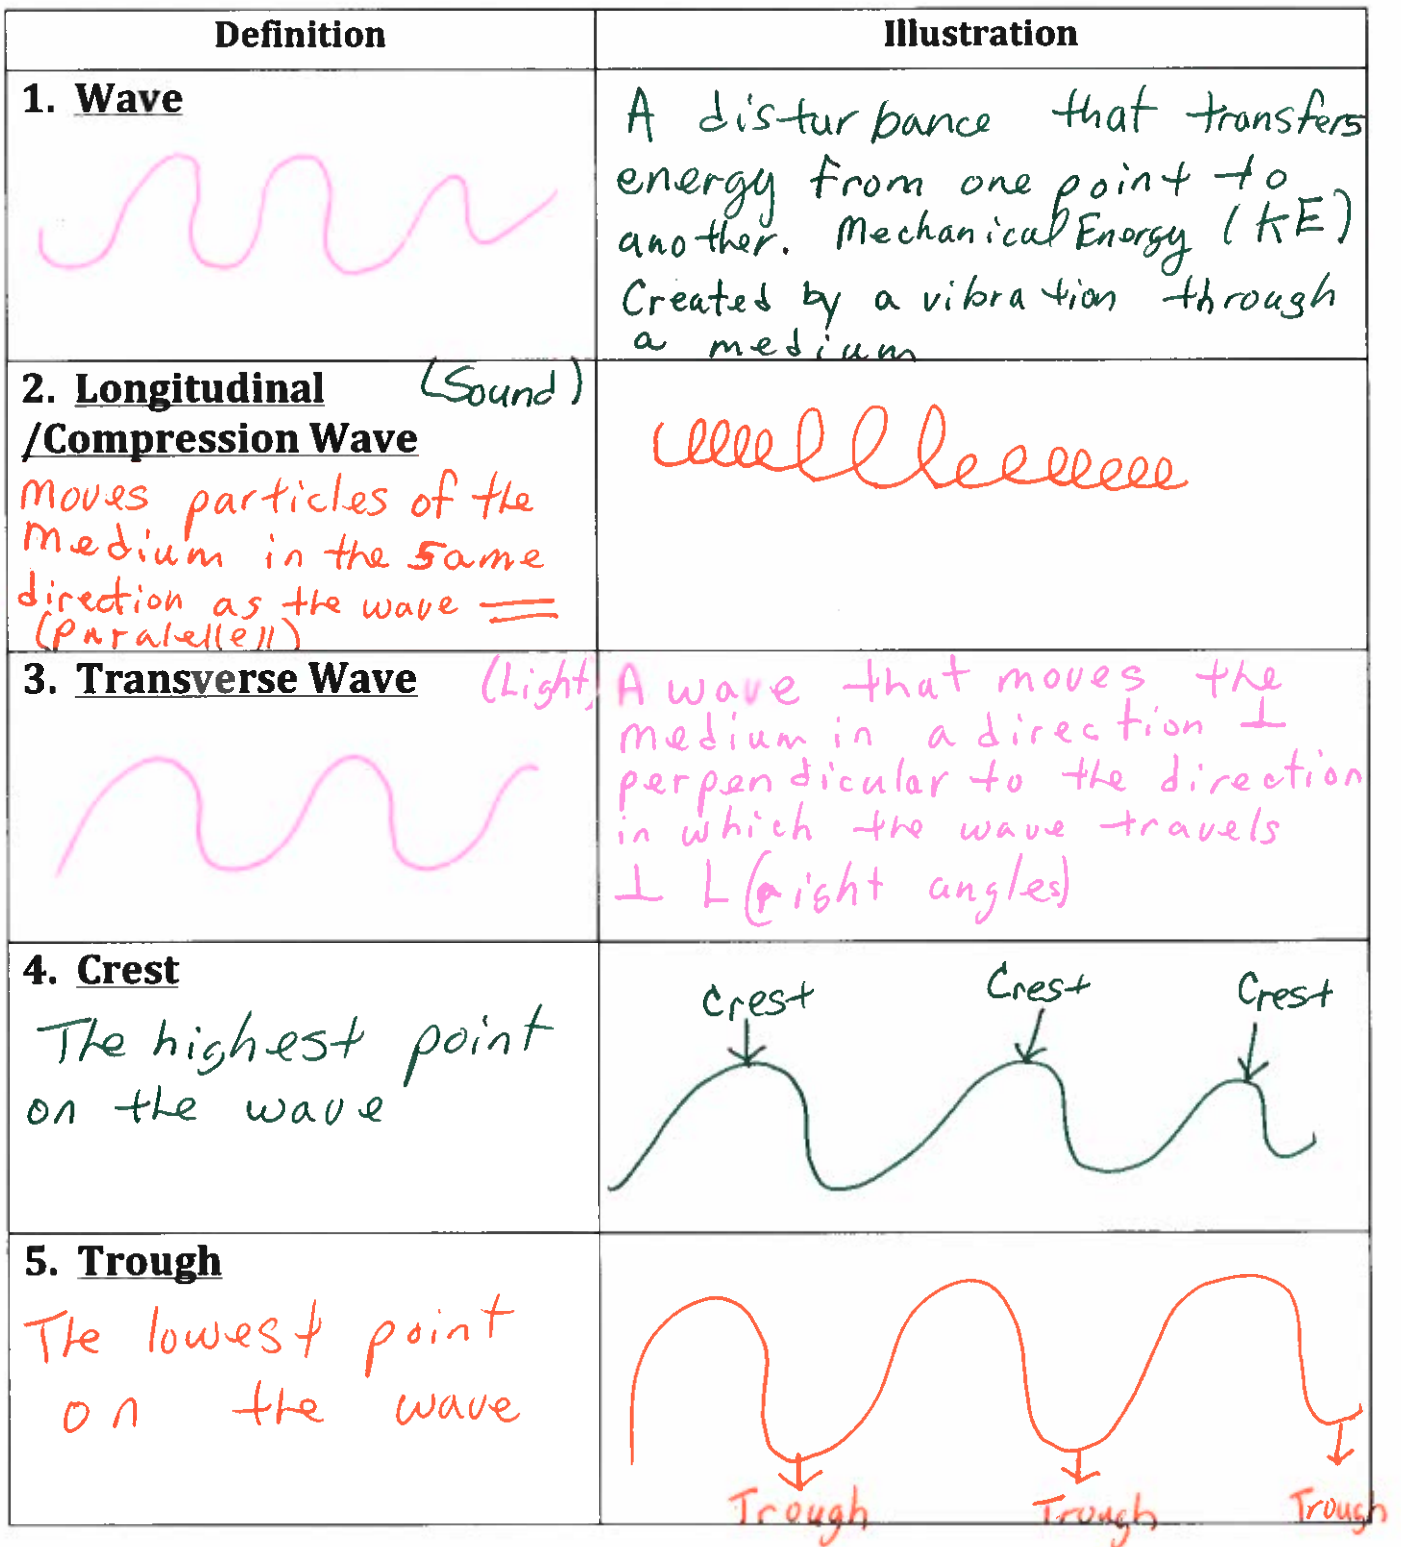 Definition
Illustration
1. Wave
A disturbance that transfers
energy from one point to
another. Mechanical Energy (KE)
Created by a vibration through
a medium
2. Longitudinal (Sound)
/Compression Wave
moves particles of the
medium in the same
direction as the wave
(Paralellell)
3. Transverse Wave (Light)
A wave that moves the
medium in a direction ⊥
perpendicular to the direction
in which the wave travels
⊥ L (right angles)
4. Crest
The highest point
on the wave
Crest Crest Crest
5. Trough
The lowest point
on the wave
Trough Trough Trough